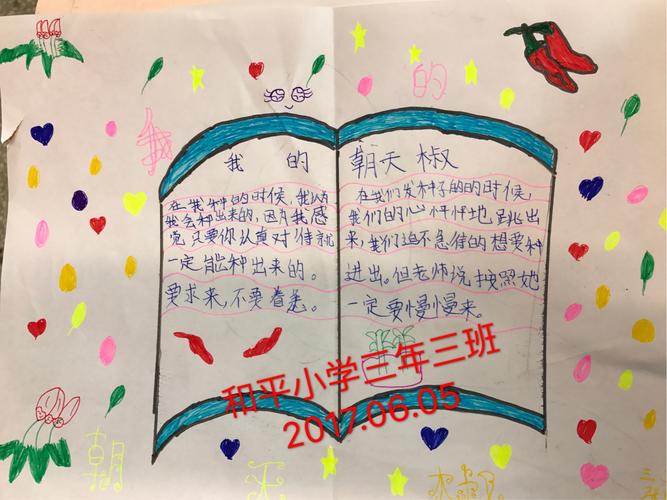 我 的
我 的 朝天椒
在我种的时候，我认为
我会种出来的，因为我感
觉只要你认真对待就
一定能种出来的。
要求来，不要着急。
在我们发种子的的时候，
我们的心怦怦地跳出
来，我们迫不急待的想要种
进出。但老师说按照她
一定要慢慢来。
和平小学三年三班
2017.06.05
朝 天 椒